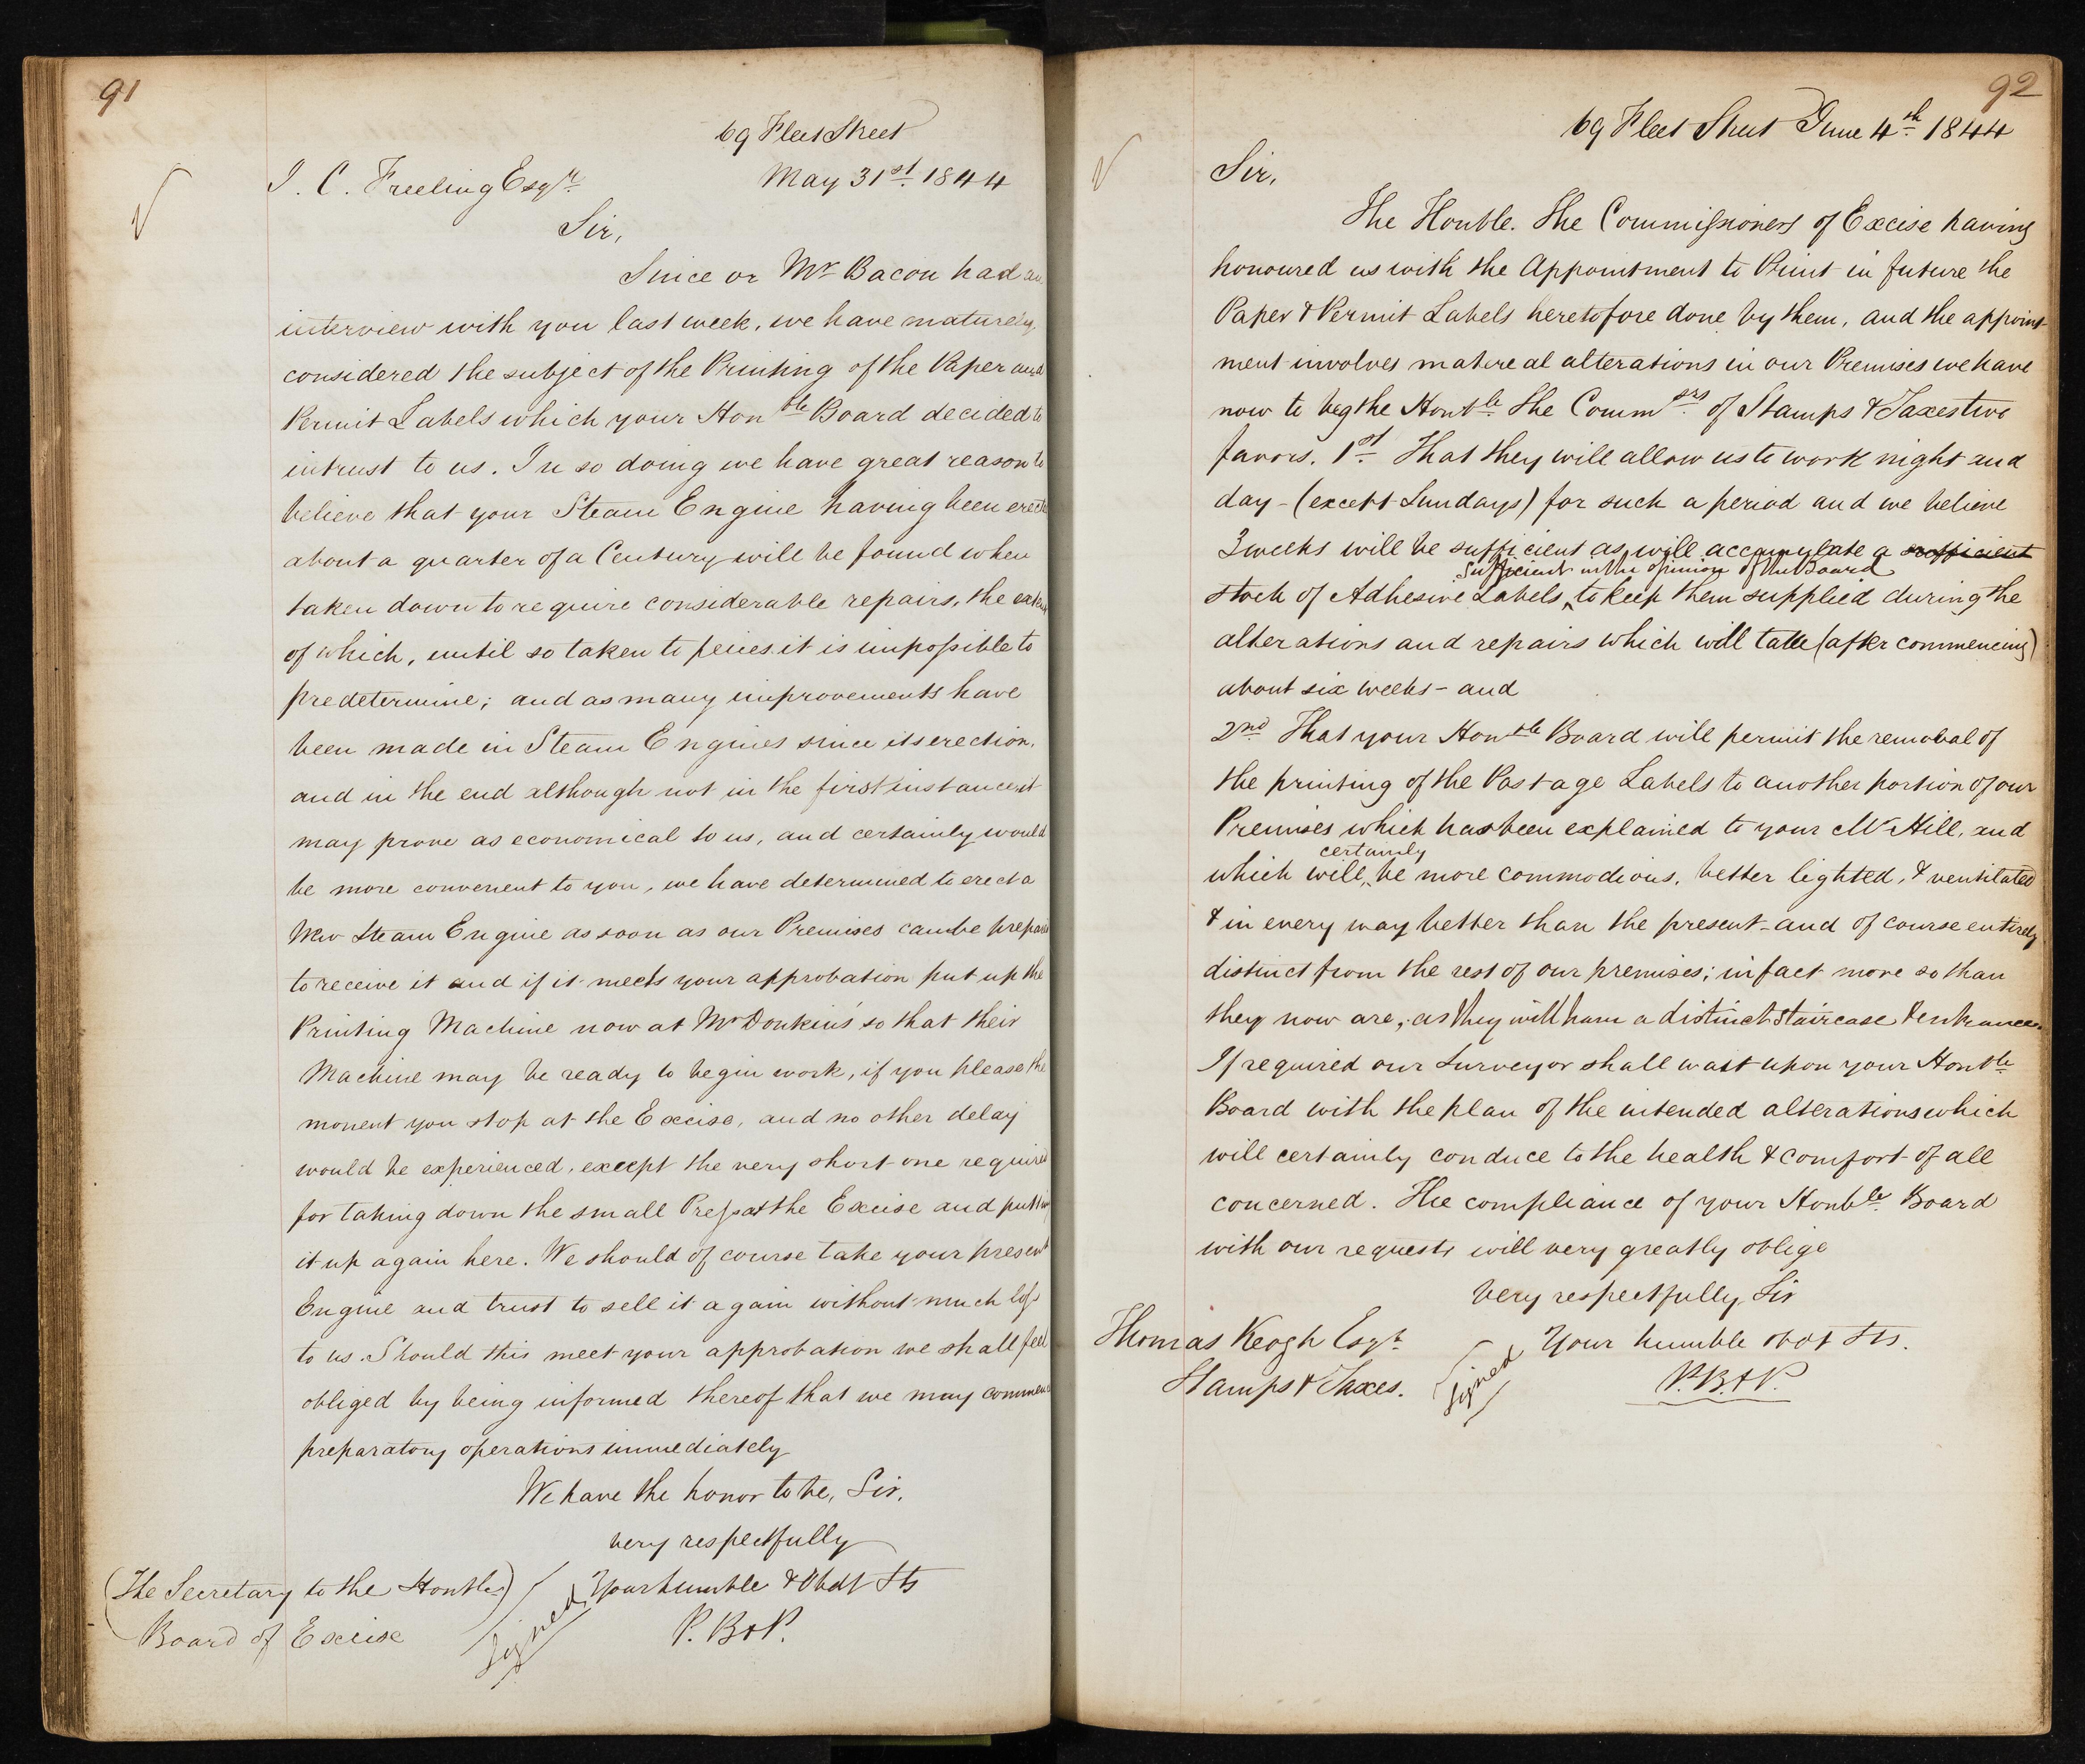 91
69 Fleet Street
J. C. Freeling Esqre.
May 31st. 1844
Sir,
Since or Mr Bacon had an
interview with you last week, we have maturely
considered the subject of the Printing of the Paper and
Permit Labels which your Honble Board decided to
intrust to us. In so doing we have great reason to
believe that your Steam Engine having been erect
about a quarter of a Century will be found when
taken down to require considerable repairs, the exten
of which, until so taken to peices it is impossible to
predetermine; and as many improvements have
been made in Steam Engines since its erection,
and in the end although not in the first instance it
may prove as economical to us, and certainly would
be more convenient to you, we have determined to erect a
New Steam Engine as soon as our Premises can be prepared
to receive it and if it meets your approbation put up the
Printing Machine now at Mr Donkins' so that their
Machine may be ready to begin work, if you please the
moment you stop at the Excise, and no other delay
would be experienced, except the very short one required
for taking down the small Press at the Excise and putting
it up again here. We should of course take your present
Engine and trust to sell it again without much loss
to us. Should this meet your approbation we shall feel
obliged by being informed thereof that we may commence
preparatory operations immediately
We have the honor to be, Sir,
very respectfully
(The Secretary to the Honble)
Your humble & Obdt Sts
Board of Excise
Signed
P. B & P.
92
69 Fleet Street June 4th. 1844
Sir,
The Honble. The Commissioners of Excise having
honoured us with the Appointment to Print in future the
Paper & Permit Labels heretofore done by them, and the appoint-
ment involves matereal alterations in our Premises we have
now to beg the Honble. the Commers. of Stamps & Taxes two
favors. 1st. That they will allow us to work night and
day - (except Sundays) for such a period and we believe
3 weeks will be sufficient as will accumulate a sufficient
Sufficient in the opinion of the Board
stock of Adhesive Labels, to keep them supplied during the
alterations and repairs which will take (after commencing)
about six weeks - and
2nd That your Honble Board will permit the removal of
the printing of the Postage Labels to another portion of our
Premises which has been explained to your Mr Hill, and
certainly
which will, be more commodious, better lighted, & ventilated
& in every way better than the present - and of course entirely
distinct from the rest of our premises; in fact more so than
they now are, as they will have a distinct Staircase & entrance.
If required our Surveyor shall wait upon your Honble
Board with the plan of the intended alterations which
will certainly conduce to the health & comfort of all
concerned. The compliance of your Honble. Board
with our requests will very greatly oblige
Very respectfully, Sir
Thomas Keogh Esqr.
Your humble obdt Sts.
Stamps & Taxes.
Signed
P. B. & P.